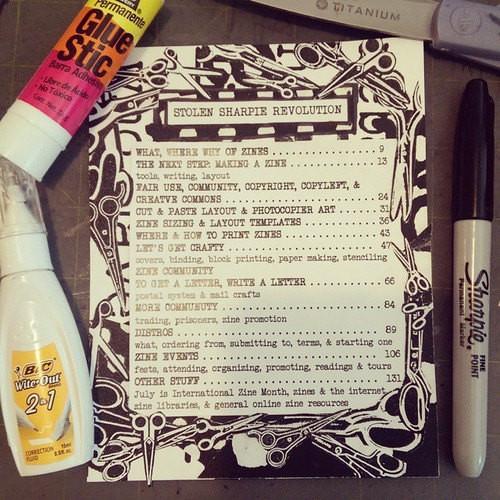 Permanente
Glue
Stic
Barra Adhesiva
• Libre de Ácido
• No Tóxico
TITANIUM
STOLEN SHARPIE REVOLUTION
WHAT, WHERE WHY OF ZINES . . . . . . . . . . . . . . . . 9
THE NEXT STEP: MAKING A ZINE . . . . . . . . . . . . . 13
tools, writing, layout
FAIR USE, COMMUNITY, COPYRIGHT, COPYLEFT, &
CREATVE COMMONS . . . . . . . . . . . . . . . . . . . . . . 24
CUT & PASTE LAYOUT & PHOTOCOPIER ART . . . . . 31
ZINE SIZING & LAYOUT TEMPLATES . . . . . . . . . . . 36
WHERE & HOW TO PRINT ZINES . . . . . . . . . . . . . . 43
LET'S GET CRAFTY . . . . . . . . . . . . . . . . . . . . . 47
covers, binding, block printing, paper making, stenciling
ZINE COMMUNITY
TO GET A LETTER, WRITE A LETTER . . . . . . . . . . 66
postal system & mail crafts
MORE COMMUNITY . . . . . . . . . . . . . . . . . . . . . . 84
trading, prisoners, zine promotion
DISTROS . . . . . . . . . . . . . . . . . . . . . . . . . . 89
what, ordering from, submitting to, terms, & starting one
ZINE EVENTS . . . . . . . . . . . . . . . . . . . . . . . 106
fests, attending, organizing, promoting, readings & tours
OTHER STUFF . . . . . . . . . . . . . . . . . . . . . . . 131
July is International Zine Month, zines & the internet
zine libraries, & general online zine resources
BIC
Wite-Out
2 in 1
CORRECTION
FLUID
Sharpie
FINE
POINT
Permanent Marker